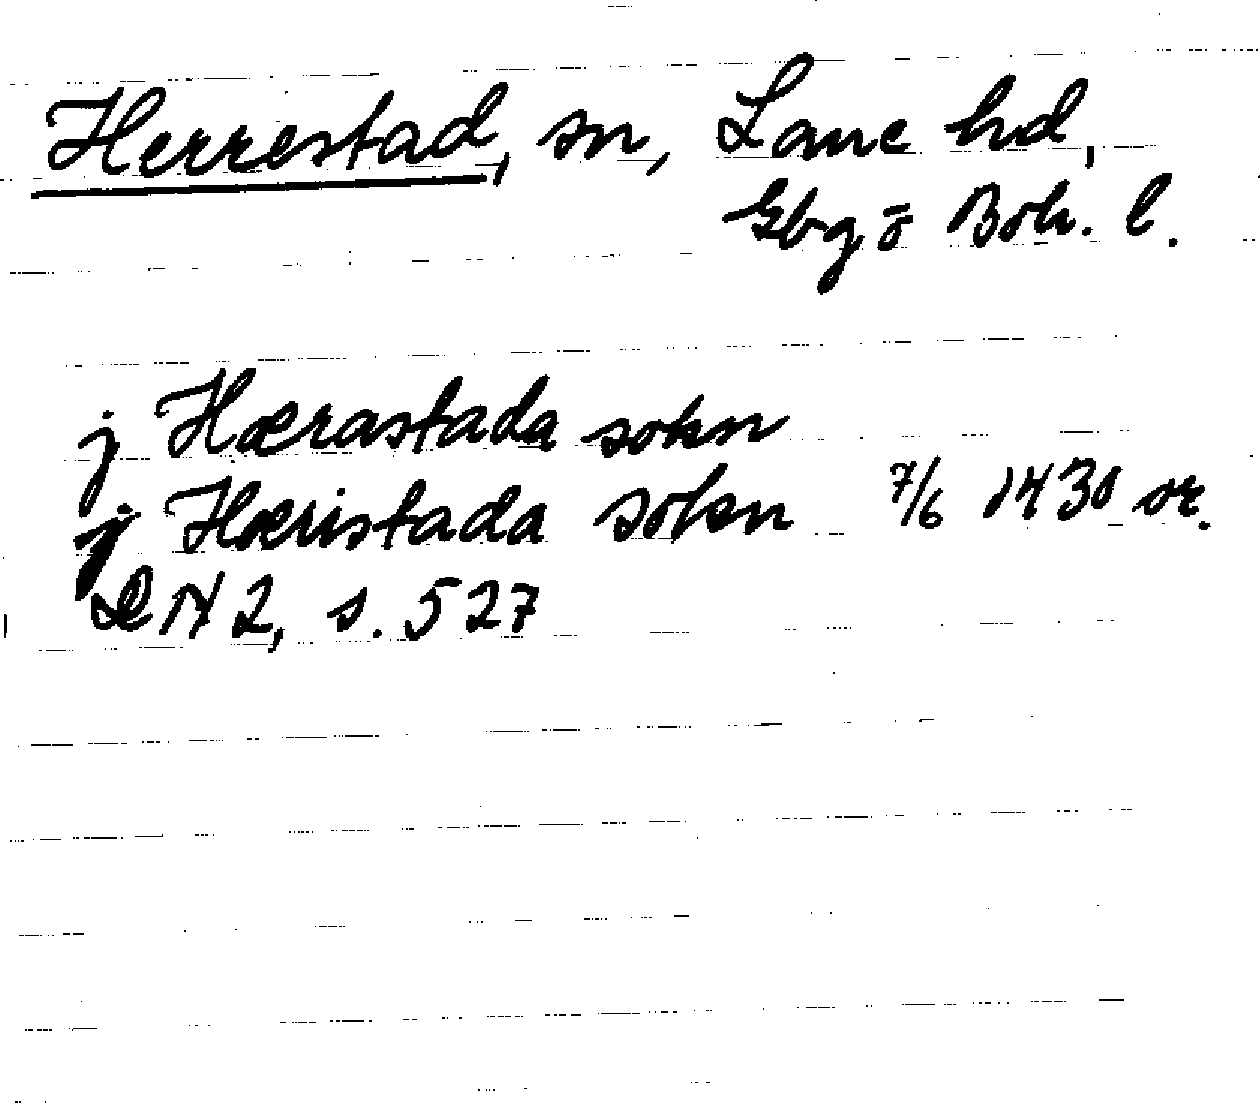 Herrestad, sn, Lane hd,
Gbg ō Boh. l.
j Hærastada sokn
j Hæristada sokn 7/6 1430 or.
DN 2, s. 527